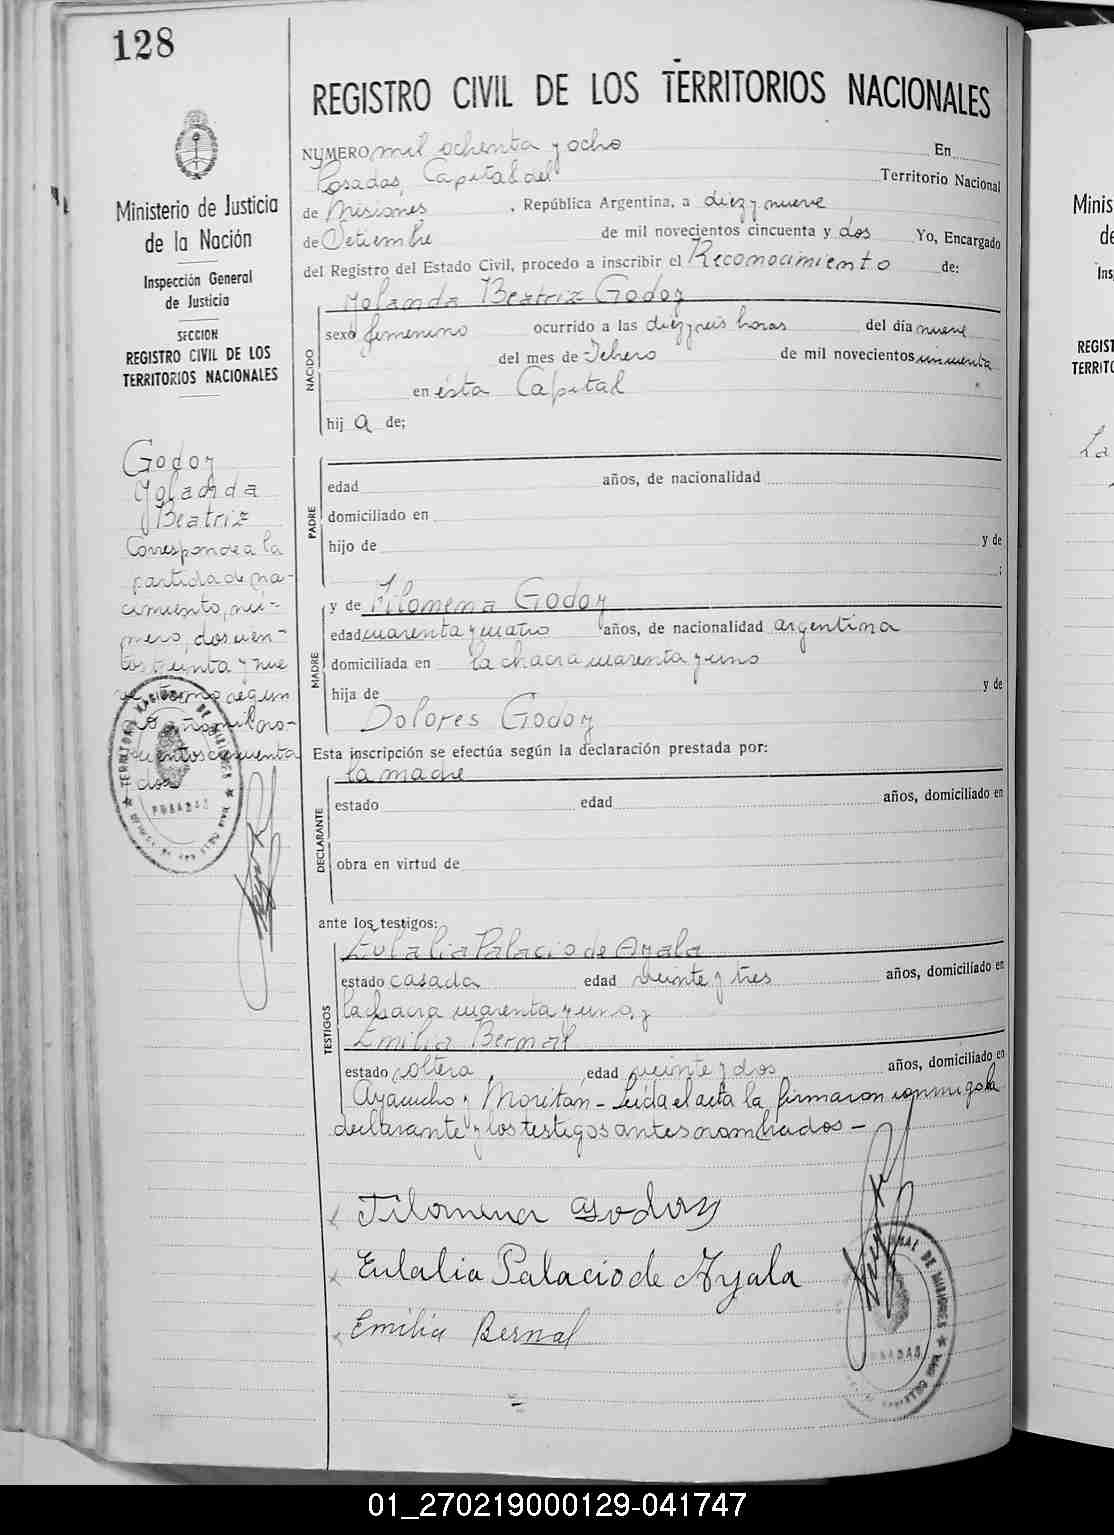 128
REGISTRO CIVIL DE LOS TERRITORIOS NACIONALES
Ministerio de Justicia
de la Nación
Inspección General
de Justicia
SECCION
REGISTRO CIVIL DE LOS
TERRITORIOS NACIONALES
NUMERO mil ochenta y ocho En
Posadas, Capital del Territorio Nacional
de Misiones, República Argentina, a diez y nueve
de Setiembre de mil novecientos cincuenta y dos Yo, Encargado
del Registro del Estado Civil, procedo a inscribir el Reconocimiento de:
Yolanda Beatriz Godoy
NACIDO
sexo femenino ocurrido a las diez y seis horas del día nueve
del mes de Febrero de mil novecientos cincuenta
en ésta Capital
hij a de:
Godoy
Yolanda
Beatriz
Corresponde a la
partida de na-
cimiento, nú-
mero, doscien-
tos treinta y nue
ve, tomo segun
do año mil no-
vecientos cincuenta
dos
TERRITORIO NACIONAL DE MISIONES
POSADAS
PADRE
edad años, de nacionalidad
domiciliado en
hijo de y de
;
MADRE
y de Filomena Godoy
edad cuarenta y cuatro años, de nacionalidad argentina
domiciliada en la chacra cuarenta y uno
hija de y de
Dolores Godoy
Esta inscripción se efectúa según la declaración prestada por:
la madre
DECLARANTE
estado edad años, domiciliado en
obra en virtud de
ante los testigos:
TESTIGOS
Eulalia Palacio de Ayala
estado casada edad veinte y tres años, domiciliado en
la chacra cuarenta y uno, y
Emilia Bernal
estado soltera, edad veinte y dos años, domiciliado en
Ayacucho y Moritan - Leída el acta la firmaron conmigo la
declarante y los testigos antes nombrados -
Filomena Godoy
Eulalia Palacio de Ayala
Emilia Bernal
NAL DE MISIONES
POSADAS
Minis
de
Ins
REGIST
TERRITO
La
01_270219000129-041747